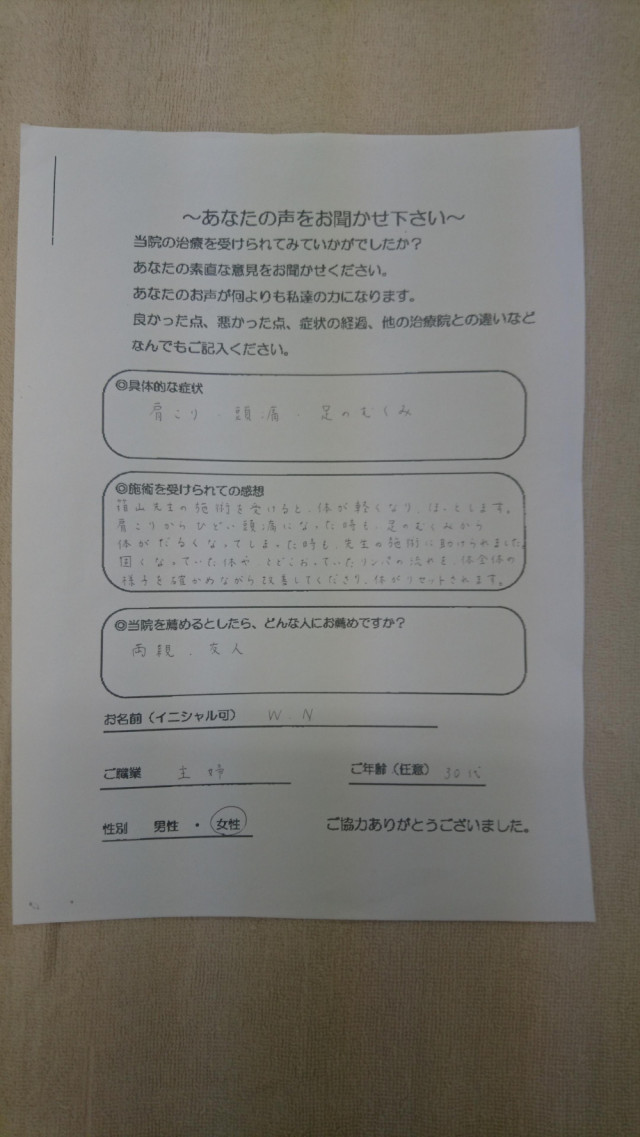 ～あなたの声をお聞かせ下さい～
当院の治療を受けられてみていかがでしたか？
あなたの素直な意見をお聞かせください。
あなたのお声が何よりも私達の力になります。
良かった点、悪かった点、症状の経過、他の治療院との違いなど
なんでもご記入ください。
◎具体的な症状
肩こり、頭痛、足のむくみ
◎施術を受けられての感想
先生の施術を受けると、体が軽くなり、ほっとします。
肩こりからひどい頭痛になった時も、足のむくみから
体がだるくなってしまった時も、先生の施術に助けられました。
固くなっていた体や とどこおっていたリンパの流れを、体全体の
様子を確かめながら改善してくださり、体がリセットされます。
◎当院を薦めるとしたら、どんな人にお薦めですか？
両親、友人
お名前（イニシャル可） W N
ご職業 主婦 ご年齢（任意） 30代
性別 男性 ・ 女性 ご協力ありがとうございました。